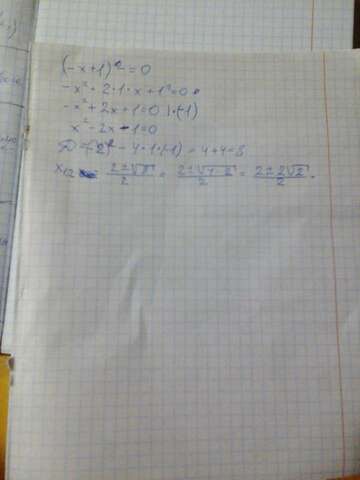 (-x+1)²=0
-x²+2·1·x+1²=0
-x²+2x+1=0 |·(-1)
x²-2x-1=0
D=(-2)²-4·1·(-1)=4+4=8
x₁,₂ = (2±√8)/2 = (2±√4·2)/2 = (2±2√2)/2.